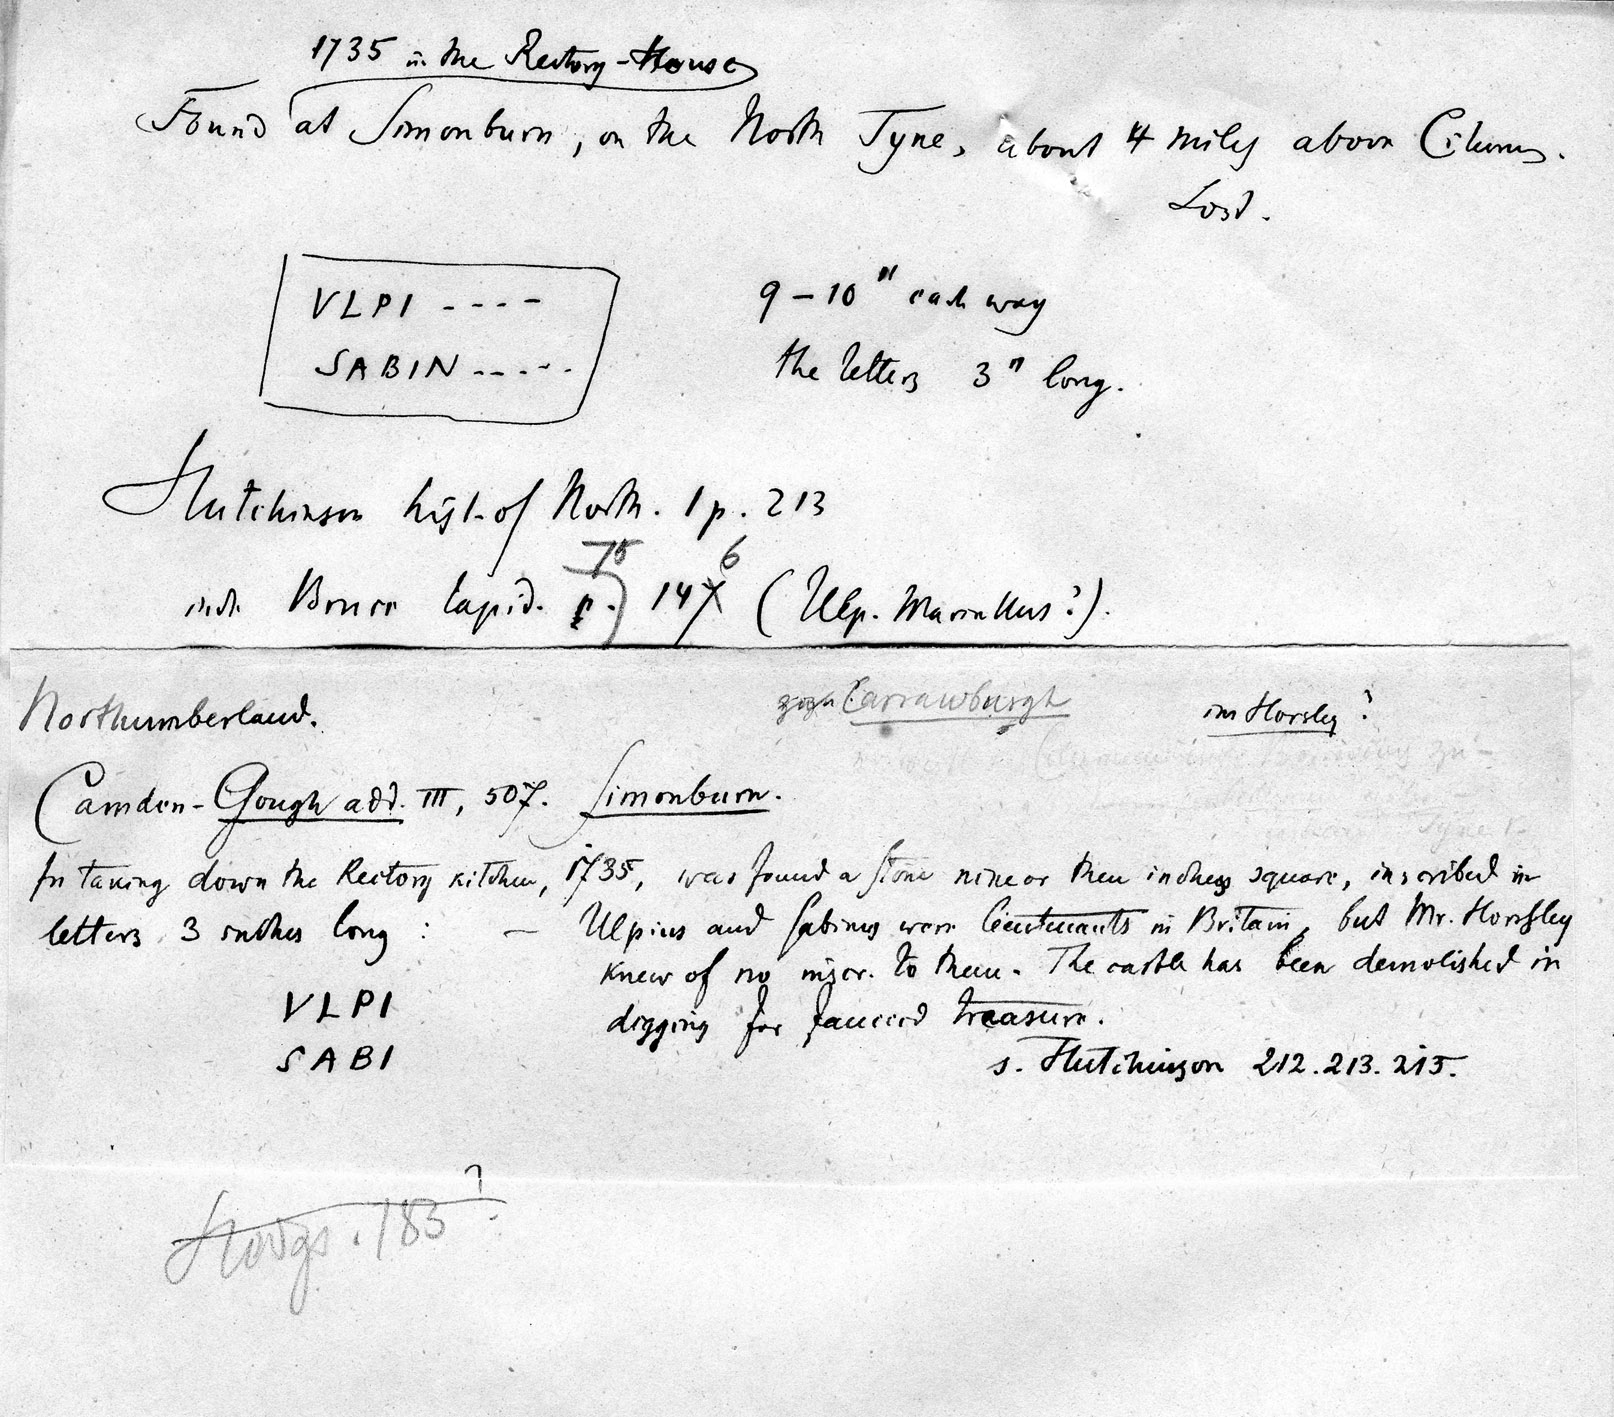 1735 in the Rectory-House
Found at Simonburn, on the North Tyne, about 4 miles above Cilurnum.
Lost.
VLPI ----
SABIN -----
9-10" each way
the letters 3" long.
Hutchinson hist. of North. 1 p. 213
inde Bruce lapid. p. 75) 1476 (Ulp. Marcellus?).
Northumberland.
Carrawburgh
im Horsley?
Camden-Gough add. III, 507. Simonburn.
In taking down the Rectory kitchen, 1735, was found a stone nine or then inches square, inscribed in
letters 3 inches long : — Ulpius and Sabinus were lieutenants in Britain, but Mr. Horsley
knew of no inscr. to them. The castle has been demolished in
digging for fancied treasure.
VLPI
SABI
s. Hutchinson 212. 213. 215.
Hodgs. 183?